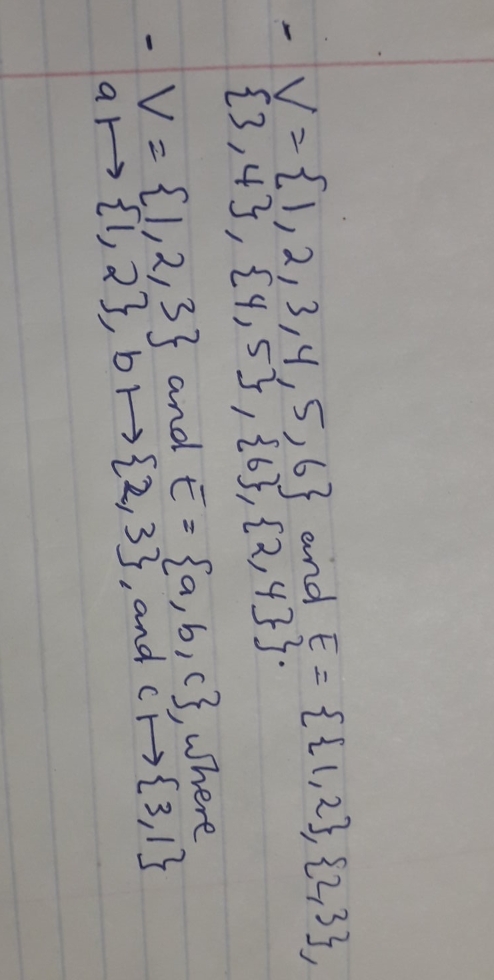 - V = {1, 2, 3, 4, 5, 6} and E = {{1, 2}, {2, 3},
{3, 4}, {4, 5}, {6}, {2, 4}}.
- V = {1, 2, 3} and E = {a, b, c}, where
a ↦ {1, 2}, b ↦ {2, 3}, and c ↦ {3, 1}